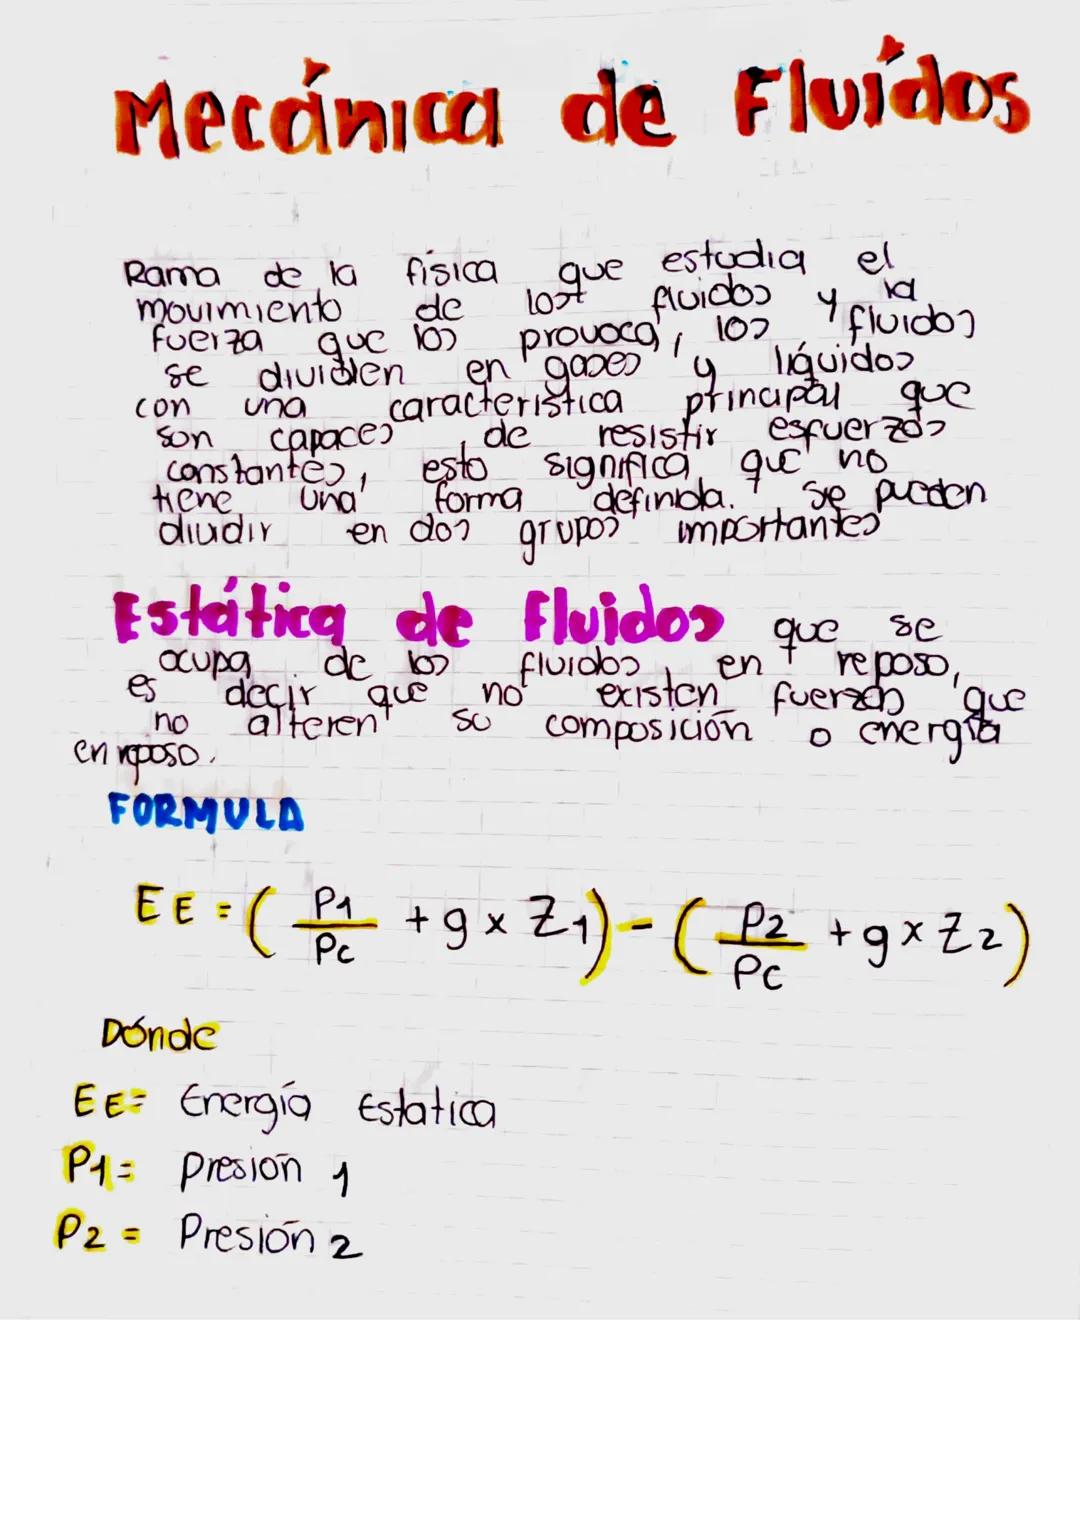 Mecánica de Fluídos
Rama de la física que estudia el
movimiento de los fluidos y la
fuerza que los provoca, los fluidos
se dividen en gases y líquidos
con una característica principal que
son capaces de resistir esfuerzos
constantes, esto significa que no
tiene una forma definida. Se pueden
dividir en dos grupos importantes
Estática de Fluidos que se
ocupa de los fluidos en reposo,
es decir que no existen fuerzas que
no alteren su composición o energía
en reposo.
FORMULA
EE = ( P1 / Pc + g x Z1 ) - ( P2 / Pc + g x Z2 )
Dónde
EE= Energía Estatica
P1= Presión 1
P2 = Presión 2